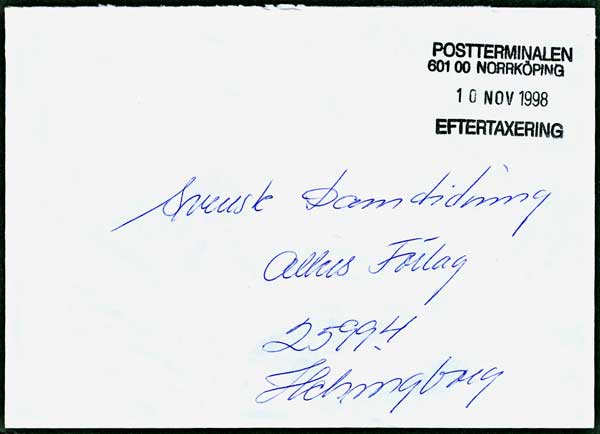 POSTTERMINALEN
601 00 NORRKÖPING
10 NOV 1998
EFTERTAXERING
Svensk Damtidning
Allers Förlag
25994
Helsingborg